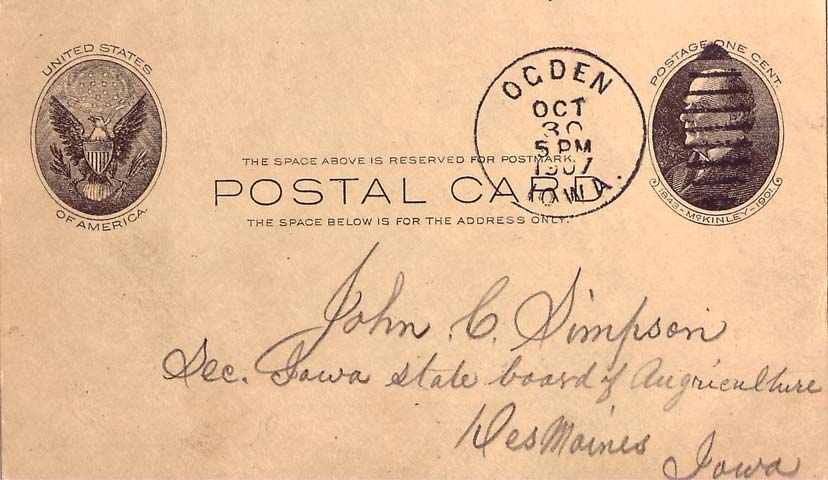 UNITED STATES
OF AMERICA.
POSTAGE ONE CENT.
1843-McKINLEY-1901.
OGDEN
OCT
30
5 PM
1907
IOWA.
THE SPACE ABOVE IS RESERVED FOR POSTMARK.
POSTAL CARD
THE SPACE BELOW IS FOR THE ADDRESS ONLY.
John C. Simpson
Sec. Iowa state board of Augriculture
Des Moines
Iowa